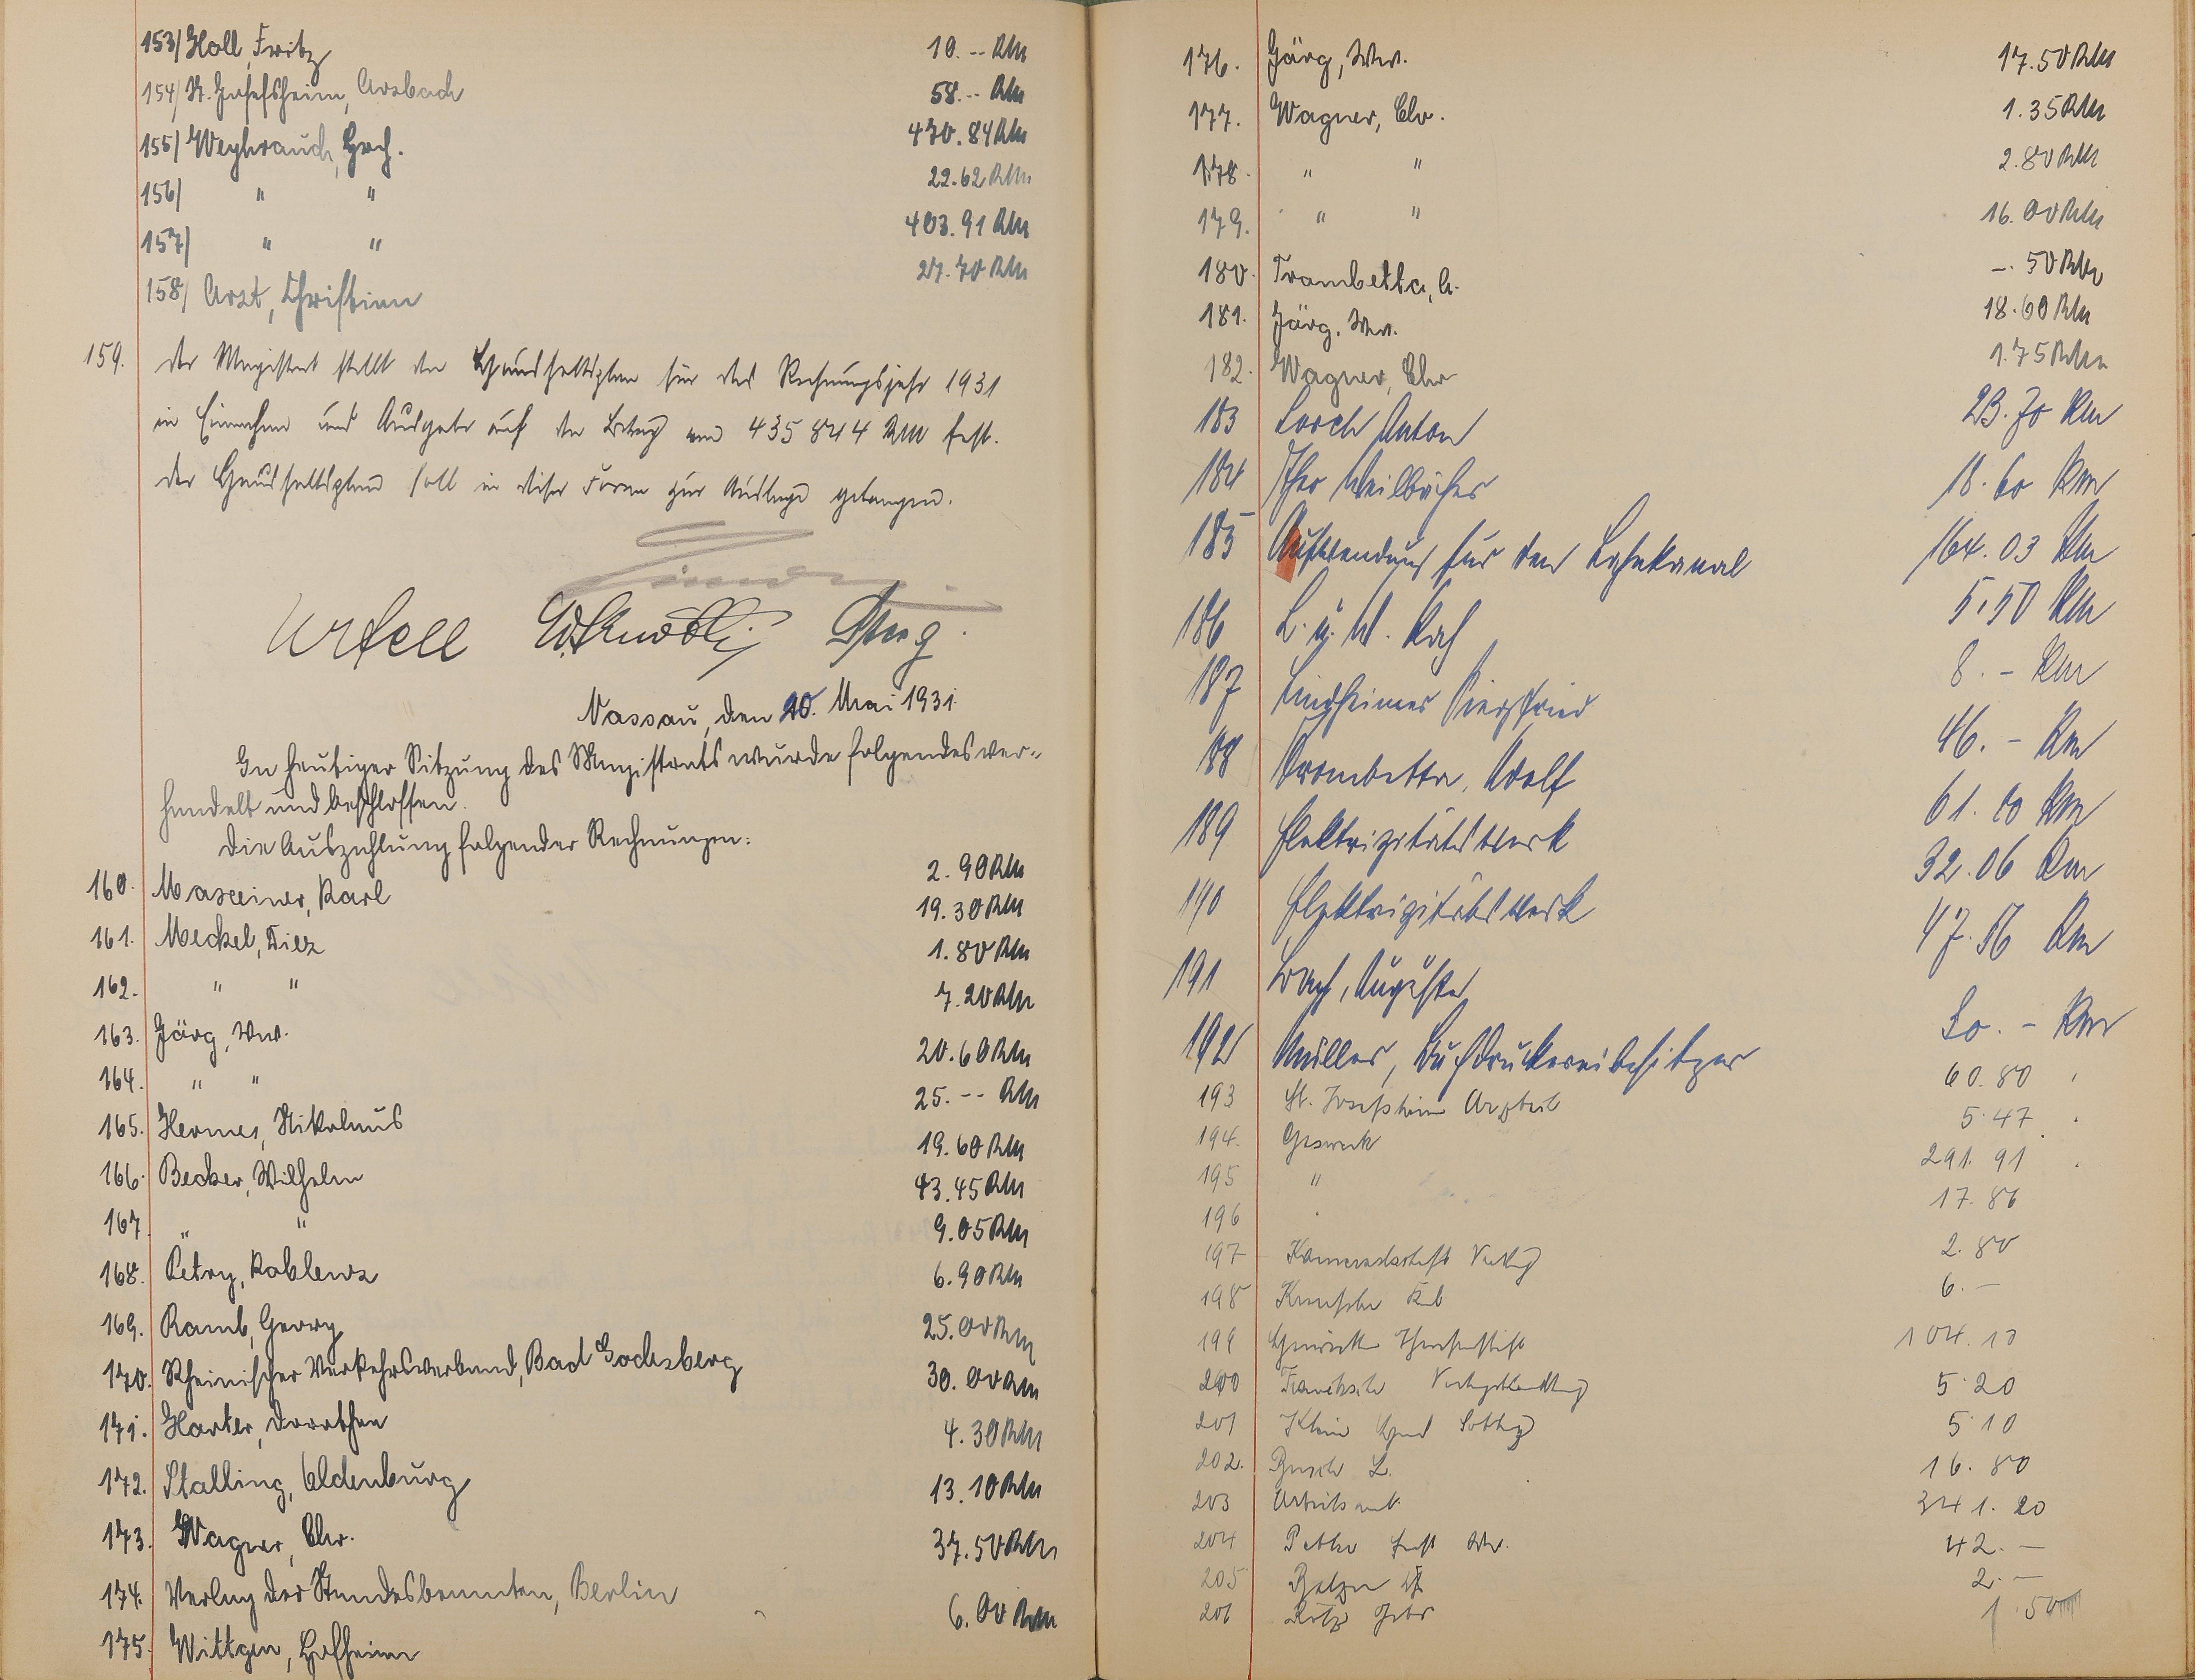 153/ Holl, Fritz 10.-- RM
154/ St. Josefsheim, Arzbach 58.-- RM
155/ Weyhrauch, Hrch. 470.84 RM
156/ " " 22.62 RM
157/ " " 403.91 RM
158/ Arzt, Christian 27.70 RM
159. Der Magistrat stellt den Haushaltsplan für das Rechnungsjahr 1931
in Einnahme und Ausgabe auf den Betrag von 435 844 RM fest.
Der Haushaltsplan soll in dieser Form zur Auslage gelangen.
Nassau, den 20. Mai 1931.
In heutiger Sitzung des Magistrats wurde folgendes ver-
handelt und beschlossen.
Die Auszahlung folgender Rechnungen:
160. Masseiner, Karl 2.90 RM
161. Meckel, Diez 19.30 RM
162. " " 1.80 RM
163. Järg, Ww. 7.20 RM
164. " " 20.60 RM
165. Hermes, Nikolaus 25.-- RM
166. Becker, Wilhelm 19.60 RM
167. " " 43.45 RM
168. Petry, Koblenz 9.05 RM
169. Ramb, Georg 6.90 RM
170. Rheinischer Verkehrsverbund, Bad Godesberg 25.00 RM
171. Harter, Dorothea 30.00 RM
172. Stalling, Oldenburg 4.30 RM
173. Wagner, Chr. 13.10 RM
174. Verlag der Standesbeamten, Berlin 37.50 RM
175. Wittgen, Hofheim 6.00 RM
176. Järg, Ww. 17.50 RM
177. Wagner, Chr. 1.35 RM
178. " " 2.80 RM
179. " " 16.00 RM
180. Trombetta, A. -.50 RM
181. Järg, Ww. 18.60 RM
182. Wagner, Chr 1.75 RM
183 Lorch Anton 23.70 RM
184 Weilbächer 18.60 RM
185 Aufwendung für den Lahnkanal 164.03 RM
186 L. u. W. 5,50 RM
187 8.- RM
188 Trombetta, Adolf 46.- RM
189 Elektrizitätswerk 61.10 RM
190 Elektrizitätswerk 32.06 RM
191 Auguste 47.56 RM
192 Müller, Buchdruckereibesitzer 30.- RM
193 St. Josefsheim Arzbach 60.80 "
194. Gaswerk 5.47 "
195 " 291.91 "
196 " 17.86
197 Kameradschaft Verlag 2.80
198 6.-
199 104.10
200 5.20
201 Klein 5.10
202. Busch L. 16.80
203 Arbeitsamt 341.20
204 Ww. 42.-
205 Balzer 2.-
206 Gebr 1.50